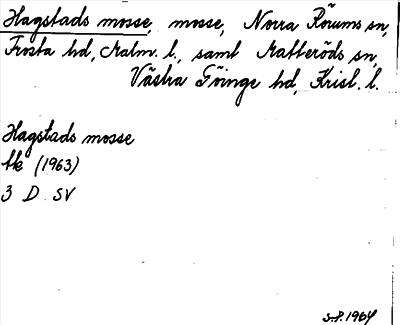 Hagstads mosse, mosse, Norra Rörums sn,
Frosta hd, Malm. l., samt Matteröds sn,
Västra Göinge hd, Krist. l.
Hagstads mosse
tk (1963)
3 D SV
S.P. 1964